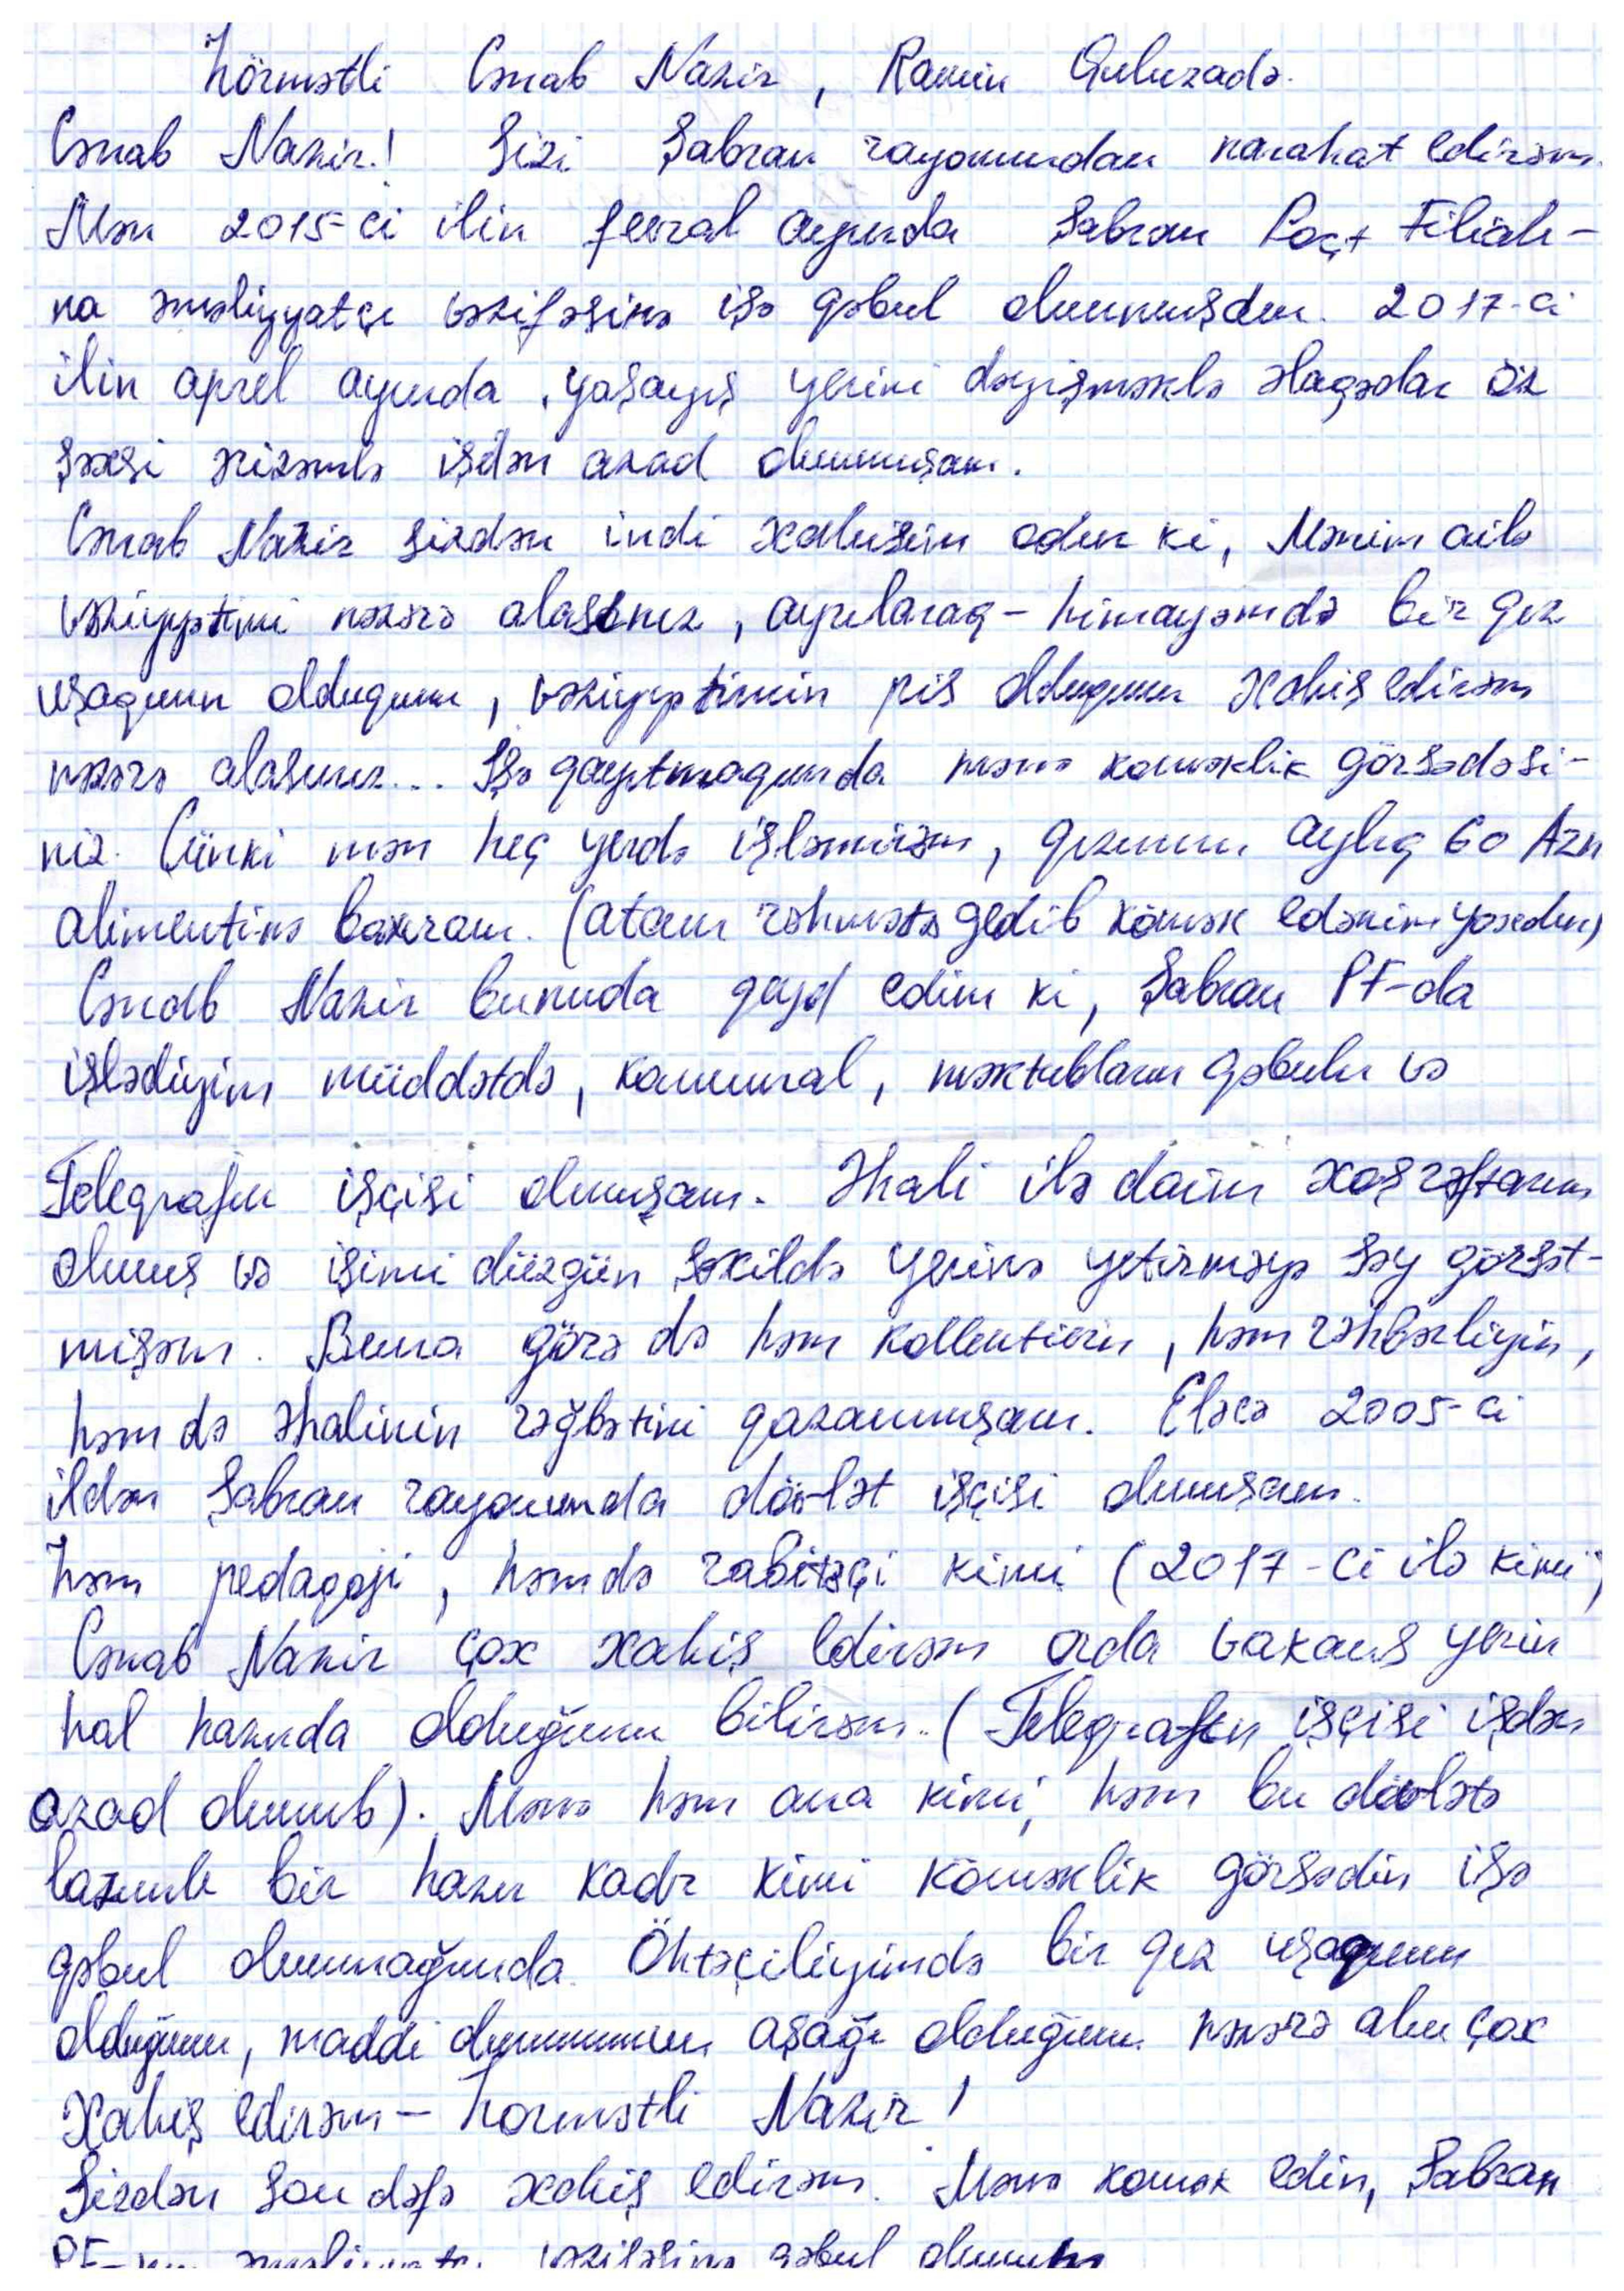 Hörmətli Cənab Nazir, Ramin Quluzadə.
Cənab Nazir! Sizi Şabran rayonundan narahat edirəm.
Mən 2015-ci ilin fevral ayında Şabran Poçt Filialı-
na əməliyyatçı vəzifəsinə işə qəbul olunmuşdum. 2017-ci
ilin aprel ayında, yaşayış yerini dəyişməklə əlaqədar öz
şəxsi ərizəmlə işdən azad olunmuşam.
Cənab Nazir sizdən indi xahişim odur ki, Mənim ailə
vəziyyətimi nəzərə alasınız, ayrılaraq - himayəmdə bir qız
uşaqımın olduqunu, vəziyyətimin pis olduqunu xahiş edirəm
nəzərə alasınız... İşə qayıtmaqımda mənə koməklik görsədəsi-
niz. Çünki mən heç yerdə işləmirəm, qızımın aylıq 60 Azn
alimentinə baxıram. (atam rəhmətə gedib kömək edənim yoxdur)
Cənab Nazir bunuda qeyd edim ki, Şabran PF-da
işlədiyim müddətdə, kommunal, məktubların qəbulu və
Teleqrafın işçisi olmuşam. Əhali ilə daim xoş rəftarım
olmuş və işimi düzgün şəkildə yerinə yetirməyə səy görsət-
mişəm. Buna görə də həm kollentivin, həm rəhbərliyin,
həm də əhalinin rəğbətini qazanmışam. Eləcə 2005-ci
ildən Şabran rayonunda dövlət işçisi olmuşam.
Həm pedaqoji, həmdə rabitəçi kimi (2017-ci ilə kimi)
Cənab Nazir çox xahiş edirəm orda vakans yerin
hal hazırda olduğunu bilirəm.. (Teleqrafın işçisi işdən
azad olunub). Mənə həm ana kimi, həm bu dövlətə
lazımlı bir hazır kadr kimi köməklik görsədin işə
qəbul olunmağımda. Öhtəçiliyimdə bir qız uşaqımın
olduğunu, maddi durumumun aşağı olduğunu nəzərə alın çox
Xahiş edirəm - hormətli Nazir!
Sizdən son dəfə xahiş edirəm. Mənə komək edin, Şabran
əməliyyatçı vəzifəsinə qəbul olunum